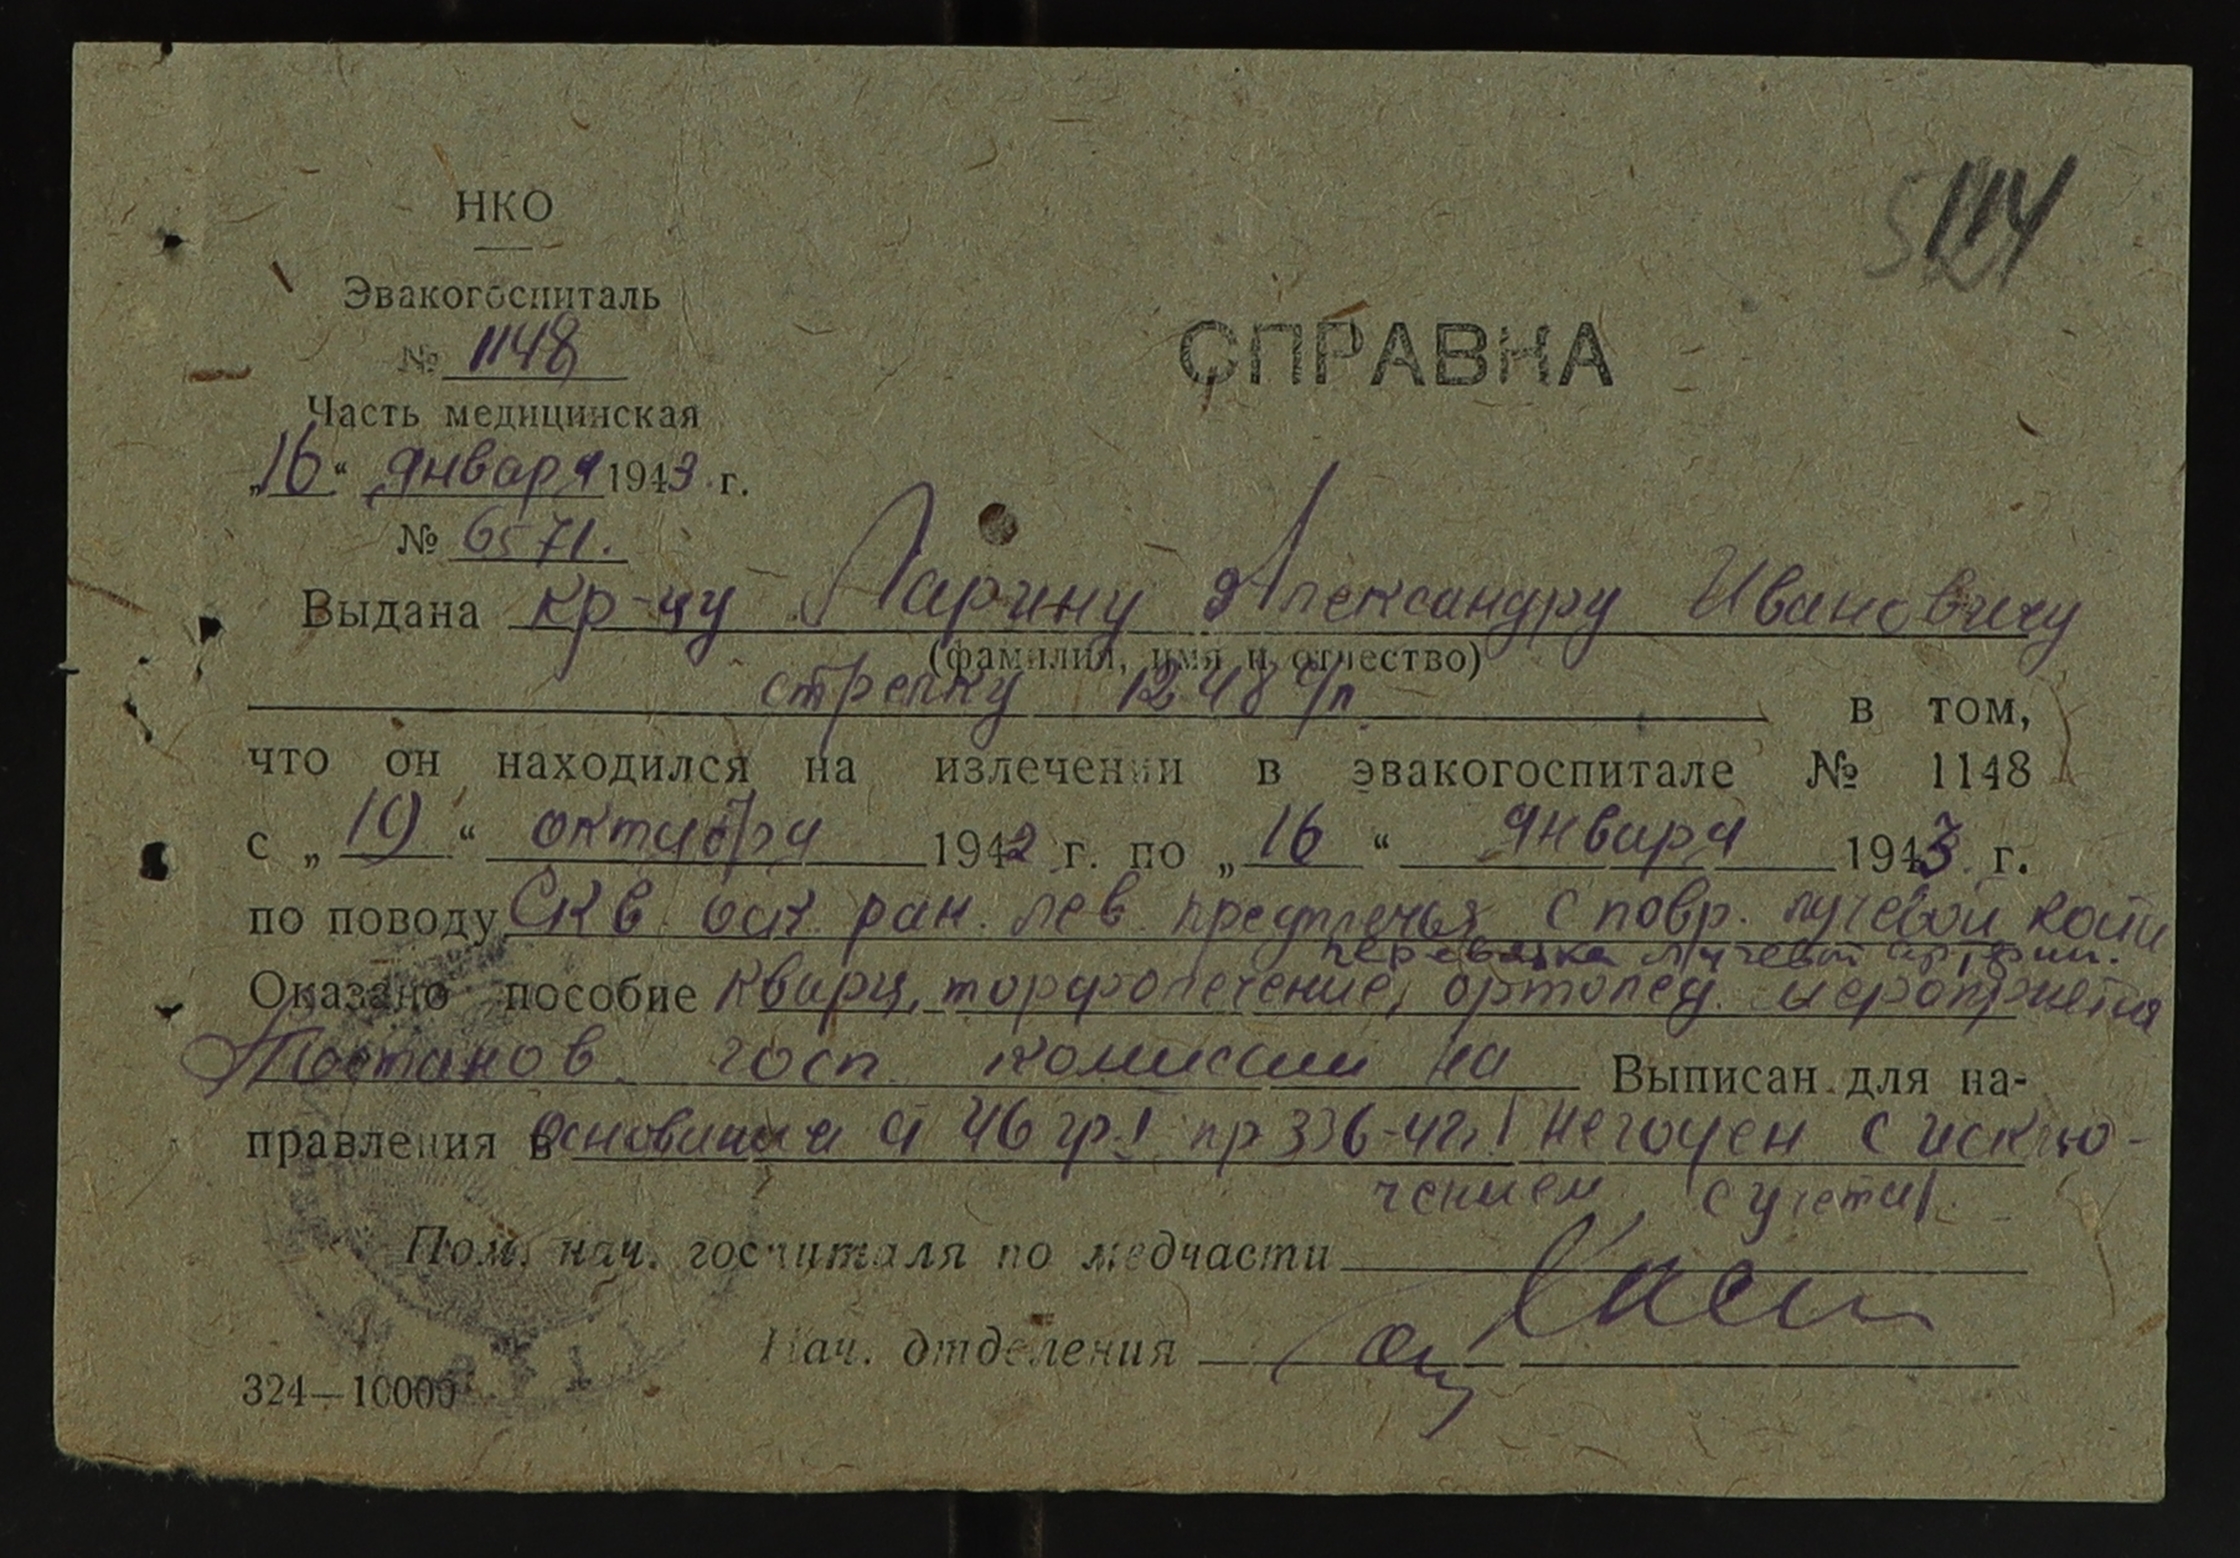 114
НКО
Эвакогоспиталь
№ 1148
СПРАВКА
Часть медицинская
„16“ января 1943 г.
№ 6571.
Выдана кр-цу Ларину Александру Ивановичу
(фамилия, имя и отчество)
стрелку 1248 с/п в том,
что он находился на излечении в эвакогоспитале № 1148
с „19“ октября 1942 г. по „16“ января 1943 г.
по поводу Скв. оск. ран. лев. предплечья с повр. лучевой кости
перевязка лучевой артерии.
Оказано пособие Кварц, торфолечение, ортопед. мероприятия
Постанов. госп. комиссии на Выписан для на-
правления в основании ст 46 гр. I пр 336-42г. негоден с исклю-
чением с учета
Пом. нач. госпиталя по медчасти
Нач. отделения
324—10000